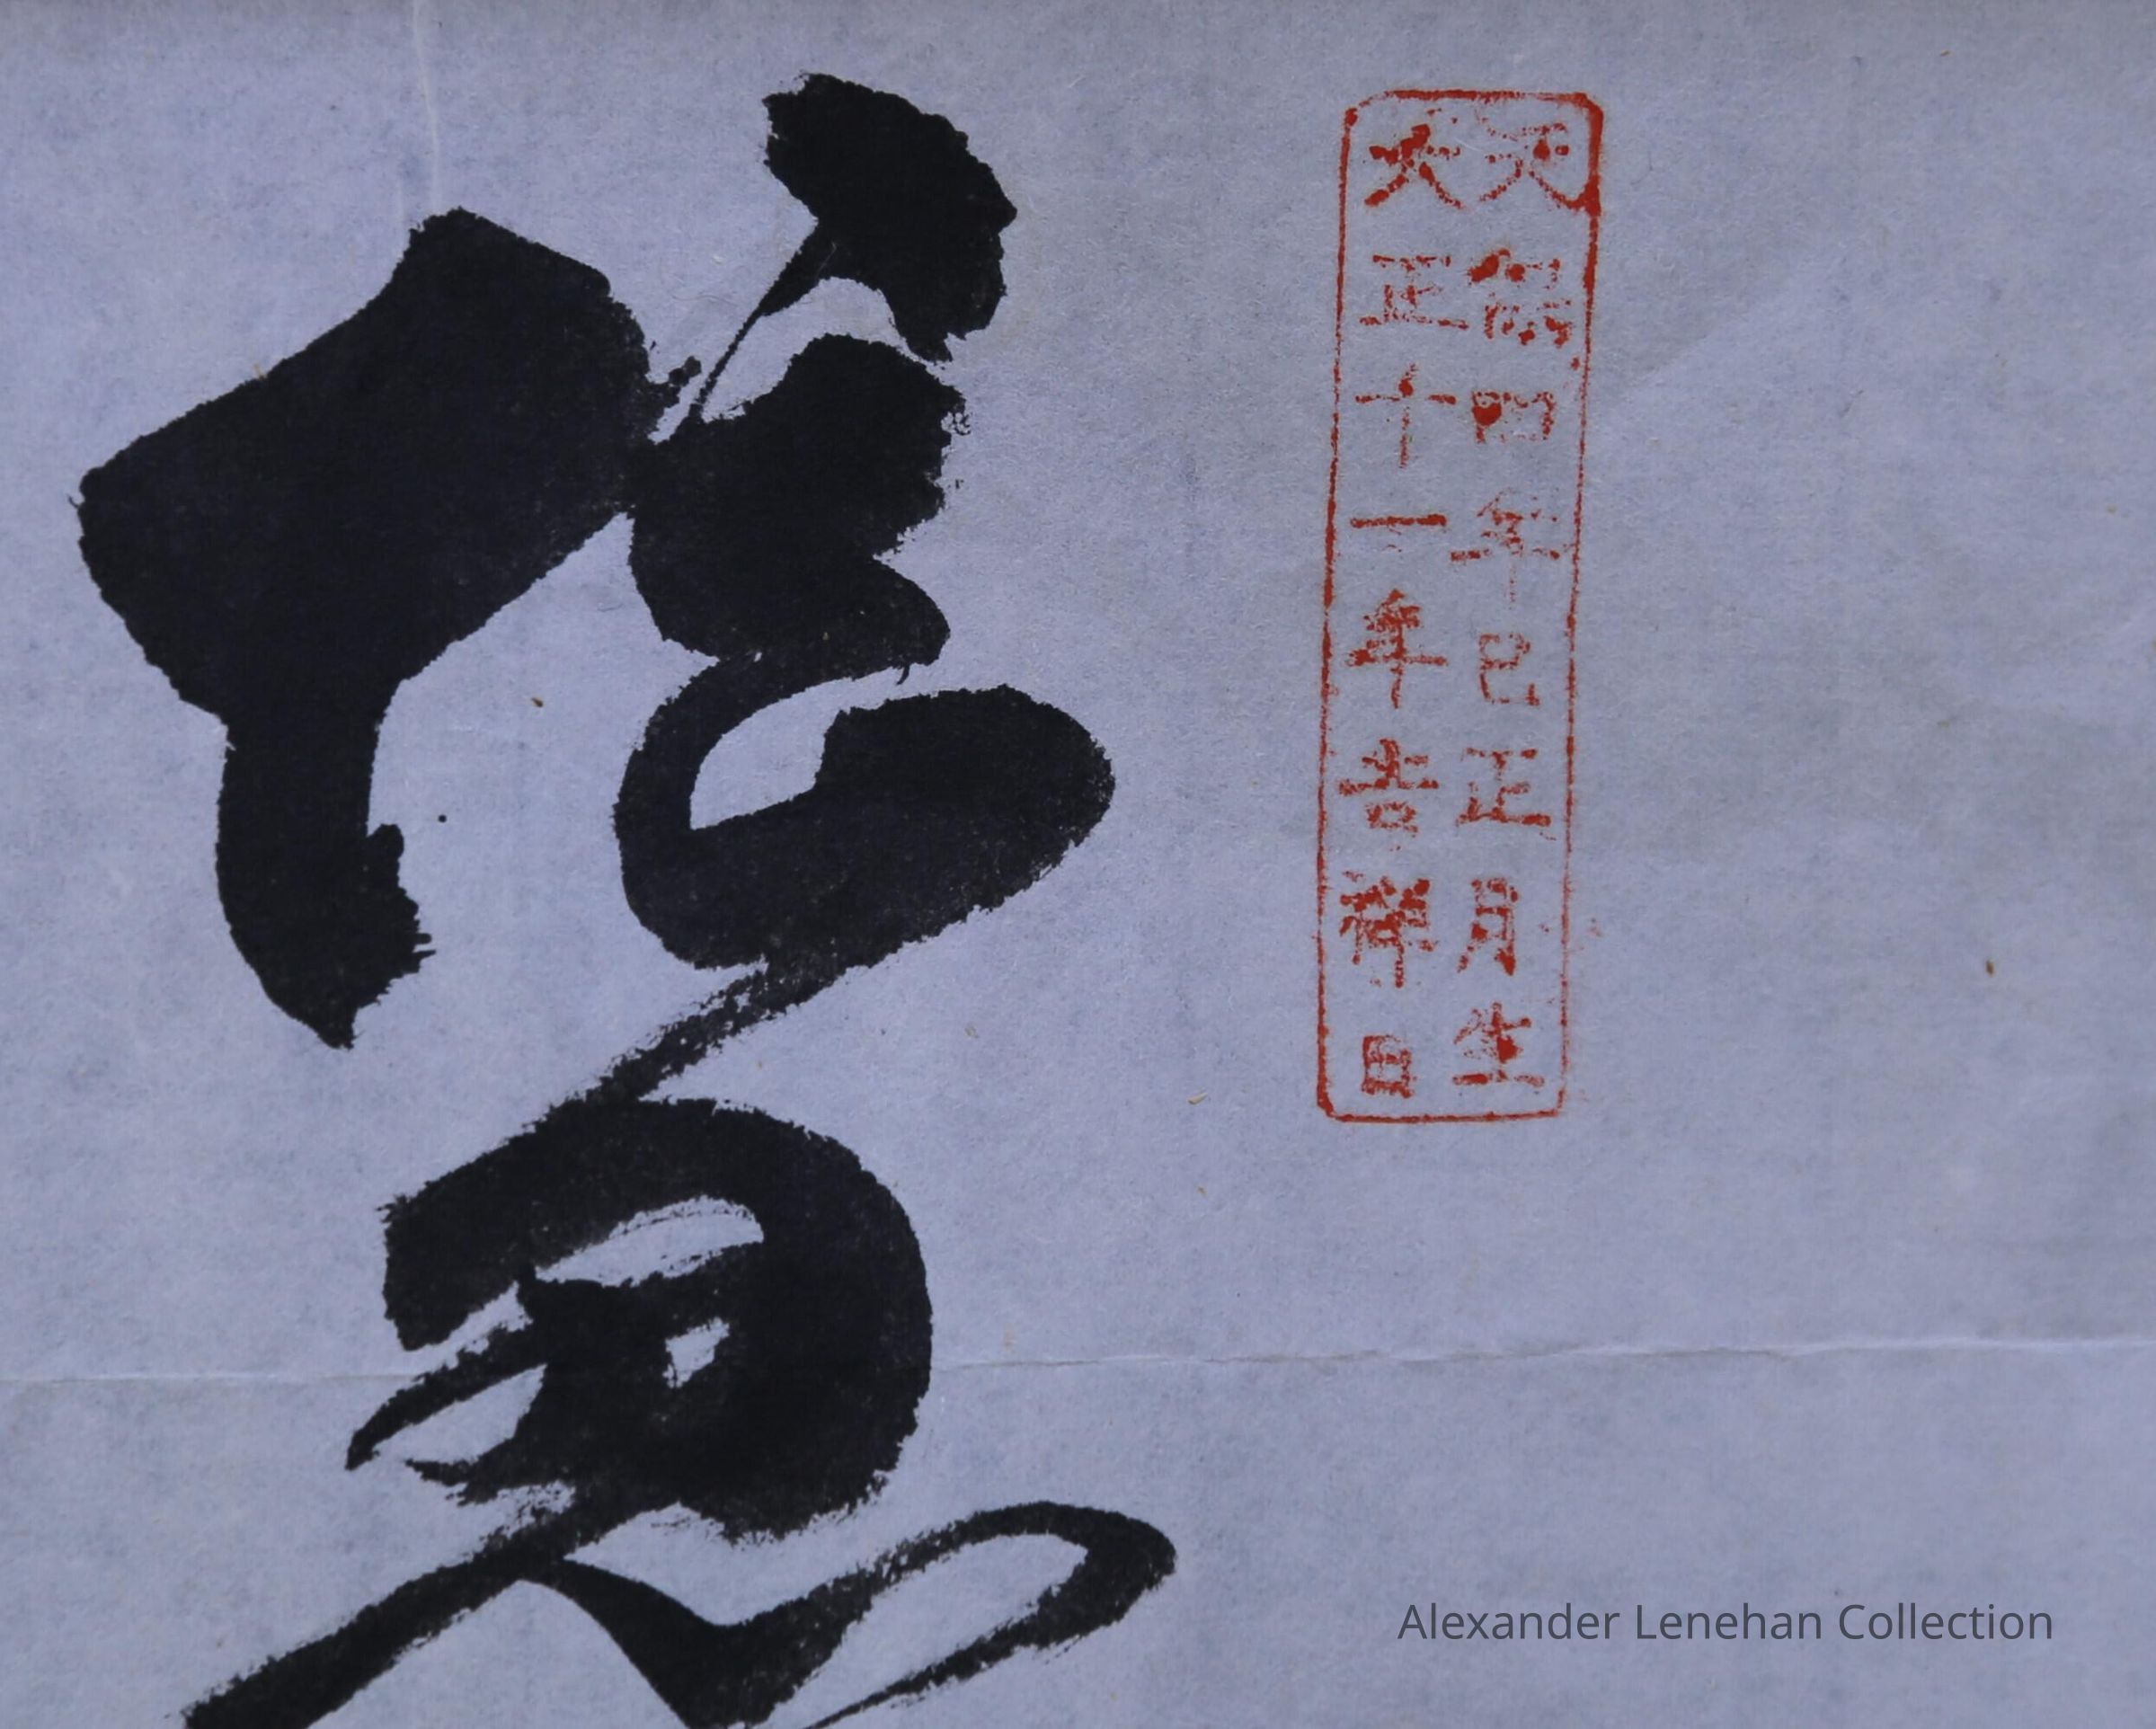 天保四年巳正月生
大正十一年吉祥日
Alexander Lenehan Collection